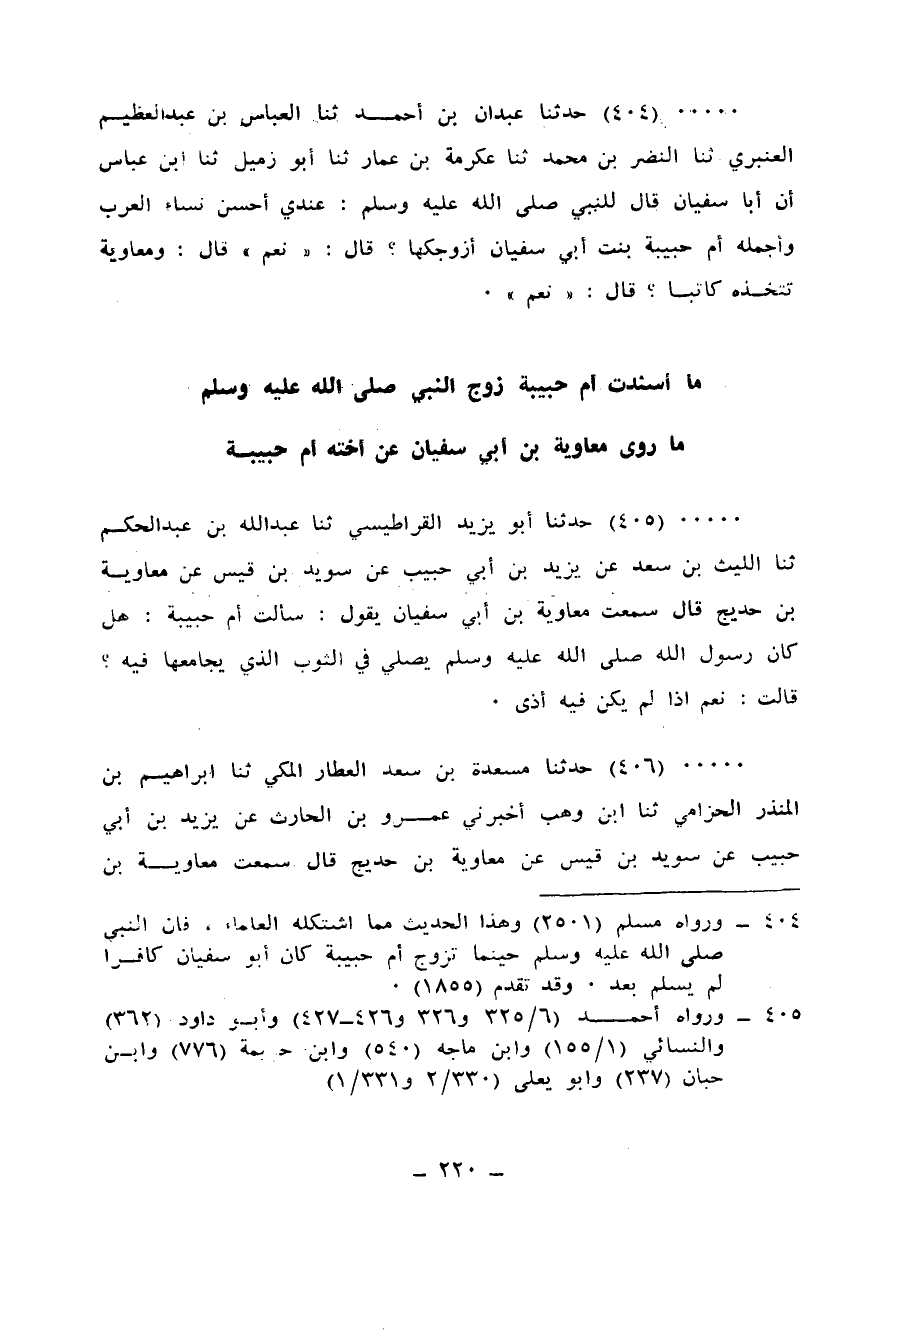 ····· (٤٠٤) حدثنا عبدان بن أحمد ثنا العباس بن عبدالعظيم
العنبري ثنا النضر بن محمد ثنا عكرمة بن عمار ثنا أبو زميل ثنا ابن عباس
أن أبا سفيان قال للنبي صلى الله عليه وسلم : عندي أحسن نساء العرب
وأجمله أم حبيبة بنت أبي سفيان أزوجكها ؟ قال : « نعم » قال : ومعاوية
تتخذه كاتبا ؟ قال : « نعم » ·
ما أسندت أم حبيبة زوج النبي صلى الله عليه وسلم
ما روى معاوية بن أبي سفيان عن أخته أم حبيبة
····· (٤٠٥) حدثنا أبو يزيد القراطيسي ثنا عبدالله بن عبدالحكم
ثنا الليث بن سعد عن يزيد بن أبي حبيب عن سويد بن قيس عن معاوية
بن حديج قال سمعت معاوية بن أبي سفيان يقول : سألت أم حبيبة : هل
كان رسول الله صلى الله عليه وسلم يصلي في الثوب الذي يجامعها فيه ؟
قالت : نعم اذا لم يكن فيه أذى ·
····· (٤٠٦) حدثنا مسعدة بن سعد العطار المكي ثنا ابراهيم بن
المنذر الحزامي ثنا ابن وهب أخبرني عمرو بن الحارث عن يزيد بن أبي
حبيب عن سويد بن قيس عن معاوية بن حديج قال سمعت معاوية بن
٤٠٤ ــ ورواه مسلم (٢٥٠١) وهذا الحديث مما اشتكله العلماء ، فان النبي
صلى الله عليه وسلم حينما تزوج أم حبيبة كان أبو سفيان كافرا
لم يسلم بعد · وقد تقدم (١٨٥٥) ·
٤٠٥ ــ ورواه أحمد (٣٢٥/٦ و٣٢٦ و٤٢٦ــ٤٢٧) وأبو داود (٣٦٢)
والنسائي (١٥٥/١) وابن ماجه (٥٤٠) وابن (٧٧٦) وابن
حبان (٢٣٧) وابو يعلى (٢/٣٣٠ و١/٣٣١)
ــ ٢٢٠ ــ